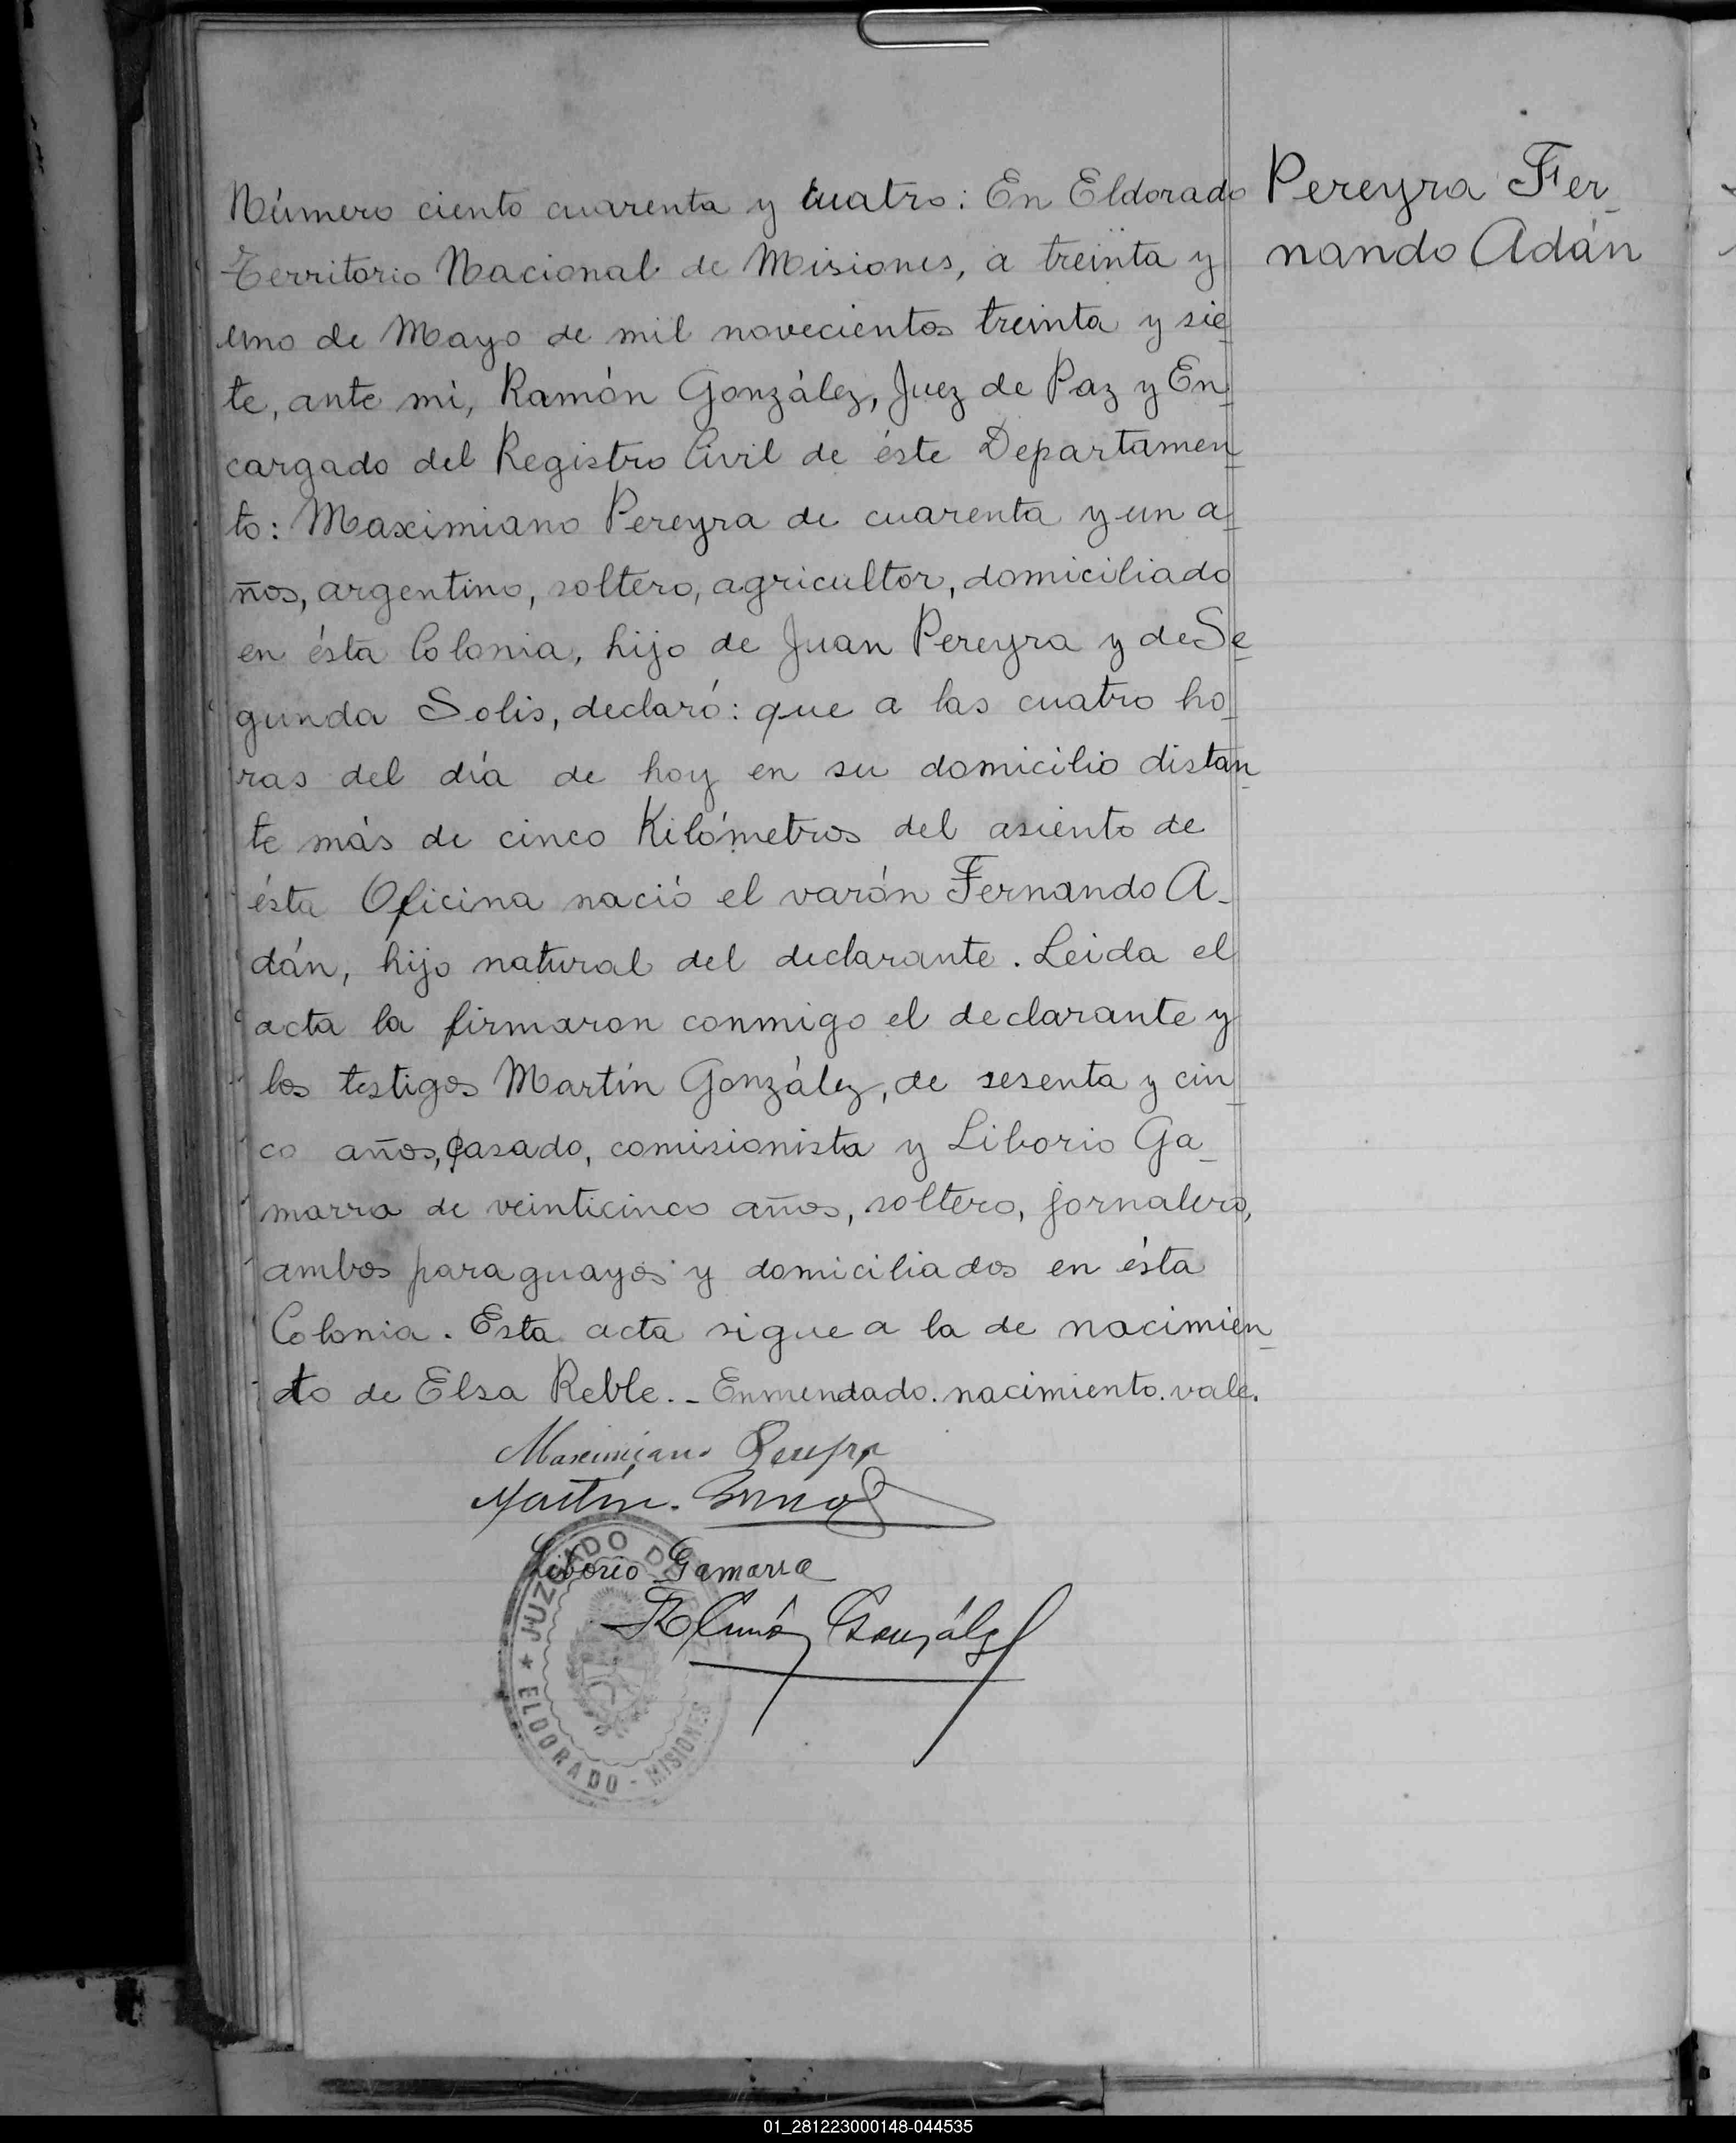 Número ciento cuarenta y cuatro: En Eldorado
Territorio Nacional de Misiones, a treinta y
uno de Mayo de mil novecientos treinta y sie
te, ante mi, Ramón González, Juez de Paz y En
cargado del Registro Civil de éste Departamen
to: Maximiano Pereyra de cuarenta y un a
ños, argentino, soltero, agricultor, domiciliado
en ésta Colonia, hijo de Juan Pereyra y de Se
gunda Solis, declaró: que a las cuatro ho
ras del día de hoy en su domicilio distan
te más de cinco Kilómetros del asiento de
ésta Oficina nació el varón Fernando A-
dán, hijo natural del declarante. Leida el
acta la firmaron conmigo el declarante y
los testigos Martín González, de sesenta y cin
co años, casado, comisionista y Liborio Ga
marra de veinticinco años, soltero, jornalero,
ambos paraguayos y domiciliados en ésta
Colonia. Esta acta sigue a la de nacimien
to de Elsa Reble._ Enmendado. nacimiento. vale.
Pereyra Fer
nando Adán
Maximiano Pereyra
Martín
Liborio Gamarra
Ramón González
JUZGADO DE
ELDORADO - MISIONES
01_281223000148-044535